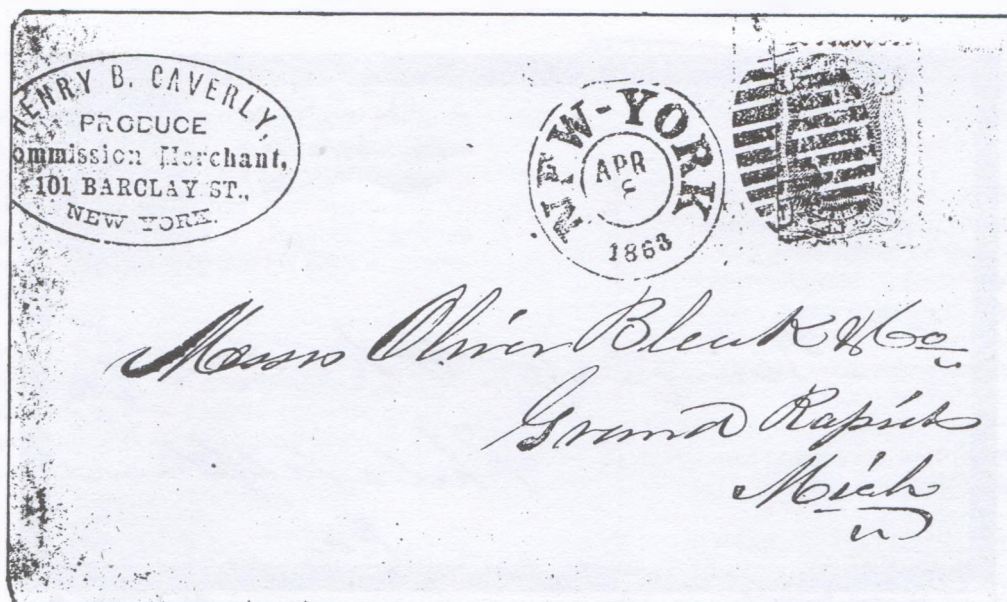 HENRY B. CAVERLY,
PRODUCE
Commission Merchant,
101 BARCLAY ST.,
NEW YORK.
NEW-YORK
APR
1863
Messrs Oliver Bleak & Co
Grand Rapids
Mich